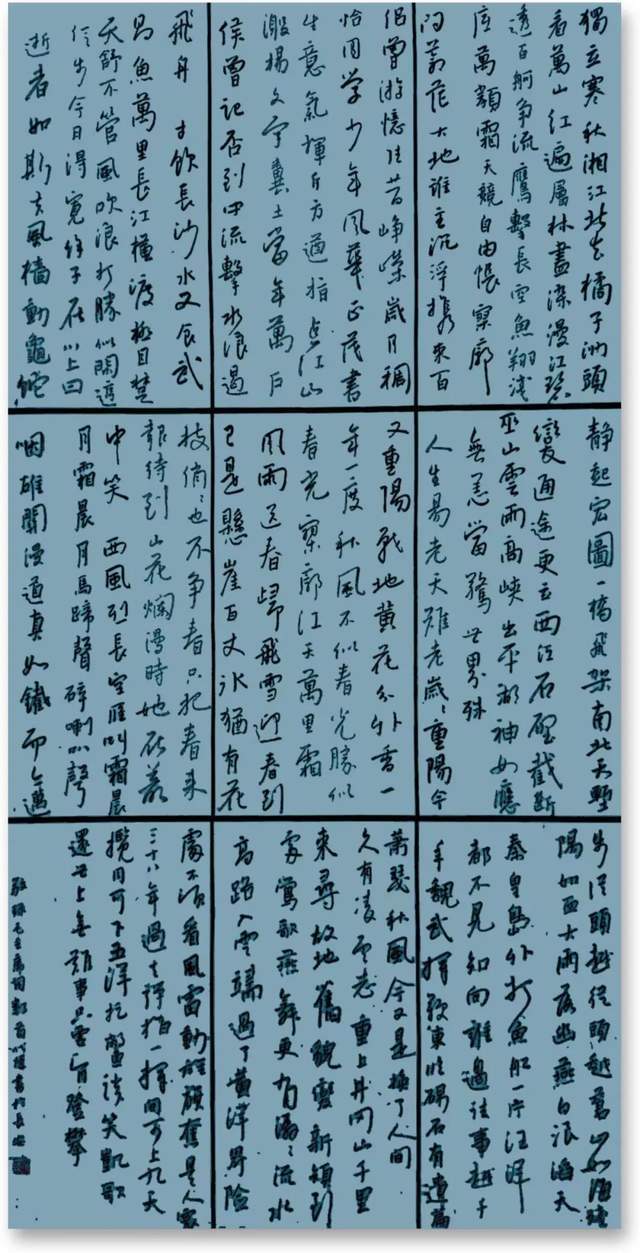 獨立寒秋湘江北去橘子洲頭
看萬山紅遍層林盡染漫江碧
透百舸争流鷹擊長空魚翔淺
底萬類霜天競自由悵寥廓
问蒼茫大地誰主沉浮携來百
侣曾游憶往昔峥嵘歲月稠
恰同学少年风華正茂書
生意氣揮斥方遒指点江山
激揚文字糞土當年萬户
侯曾記否到中流擊水浪遏
飛舟 才飲長沙水又食武
昌魚萬里長江橫渡極目楚
天舒不管風吹浪打勝似閑庭
信步今日得寬馀子在川上曰
逝者如斯夫風檣動龜蛇
静起宏圖一橋飛架南北天塹
變通途更立西江石壁截斷
巫山雲雨高峽出平湖神女應
無恙當驚世界殊
人生易老天難老歲〻重陽今
又重陽戰地黄花分外香一
年一度秋風不似春光勝似
春光寥廓江天萬里霜
風雨送春歸飛雪迎春到
已是懸崖百丈冰猶有花
枝俏〻也不争春只把春来
報待到山花爛漫時她在叢
中笑 西風烈長空雁叫霜晨
月霜晨月馬蹄聲碎喇叭聲
咽雄關漫道真如鐵而今邁
步從頭越從頭越蒼山如海殘
陽如血大雨落幽燕白浪滔天
秦皇島外打魚船一片汪洋
都不見知向誰邊往事越千
年魏武揮鞭東臨碣石有遺篇
蕭瑟秋風今又是换了人间
久有凌雲志重上井冈山千里
來尋故地舊貌變新顏到
處鶯歌燕舞更有潺〻流水
高路入雲端過了黄洋界險
處不須看風雷動旌旗奮是人寰
三十八年過去彈指一揮间可上九天
攬月可下五洋捉鱉談笑凱歌
還世上無難事只要肯登攀
敬録毛主席詞數首書於長安